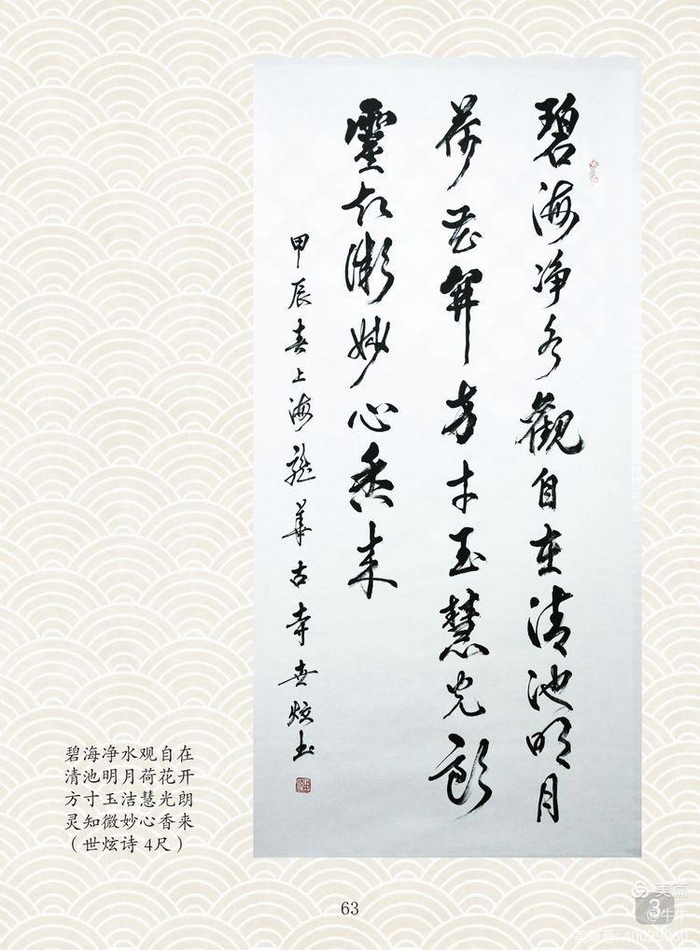 碧海净水觀自在清池明月
荷花開方寸玉慧光朗
靈知微妙心香来
甲辰春上海龍華古寺世炫书
碧海净水观自在
清池明月荷花开
方寸玉洁慧光朗
灵知微妙心香来
（世炫诗 4尺）
63
美篇
3